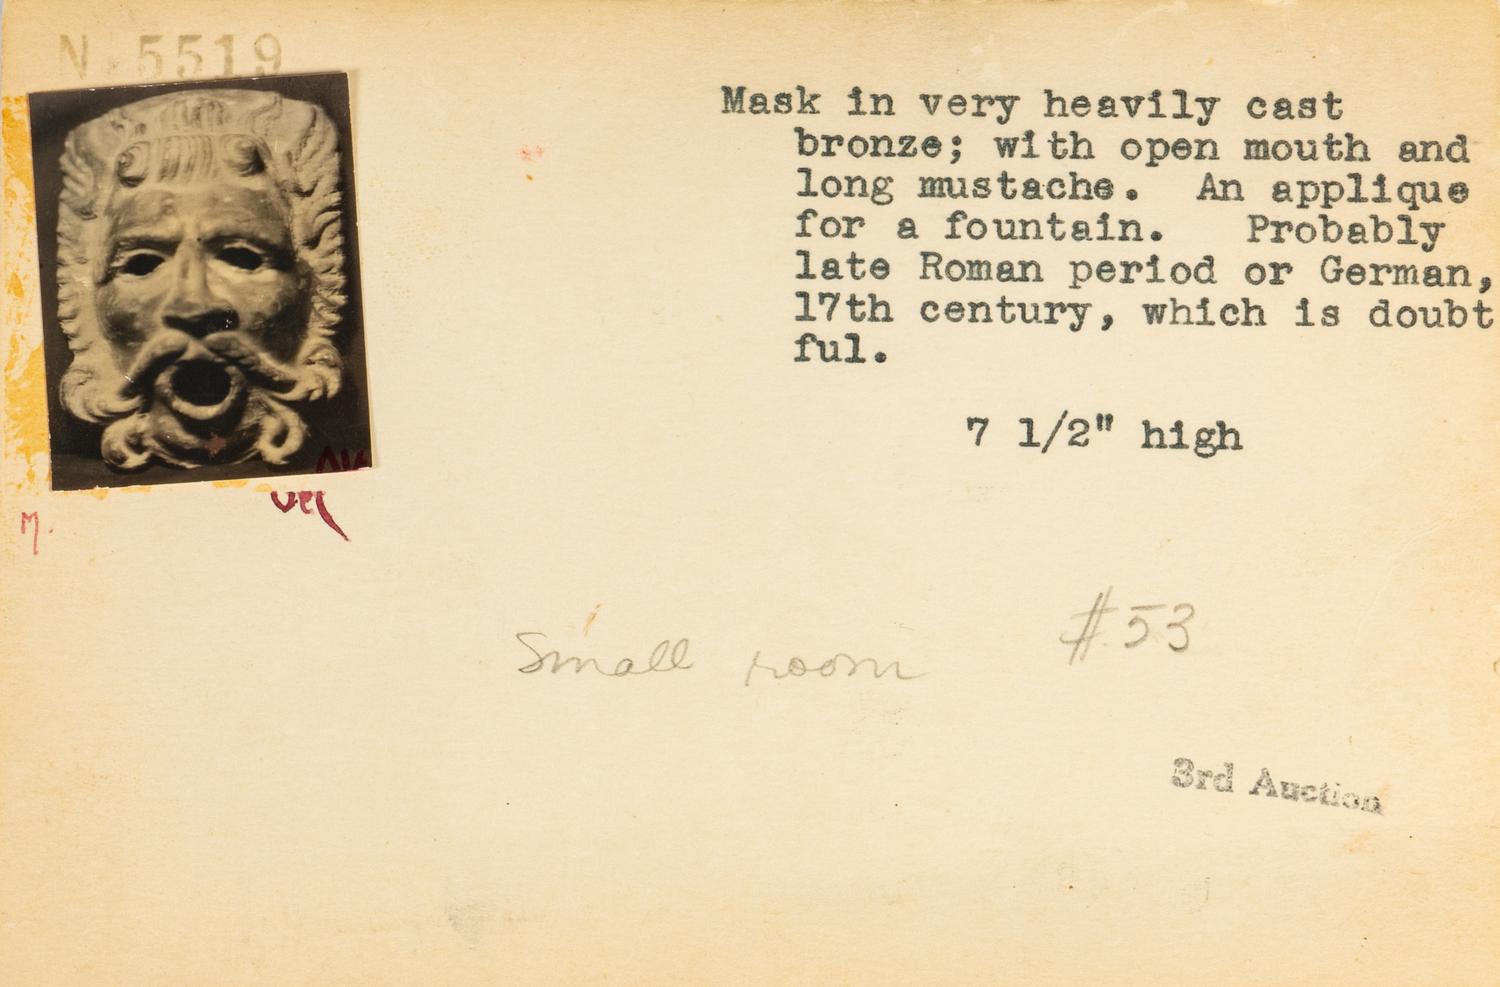 N 5519
Mask in very heavily cast
bronze; with open mouth and
long mustache. An applique
for a fountain. Probably
late Roman period or German,
17th century, which is doubt
ful.
7 1/2" high
M.
#53
Small room
3rd Auction